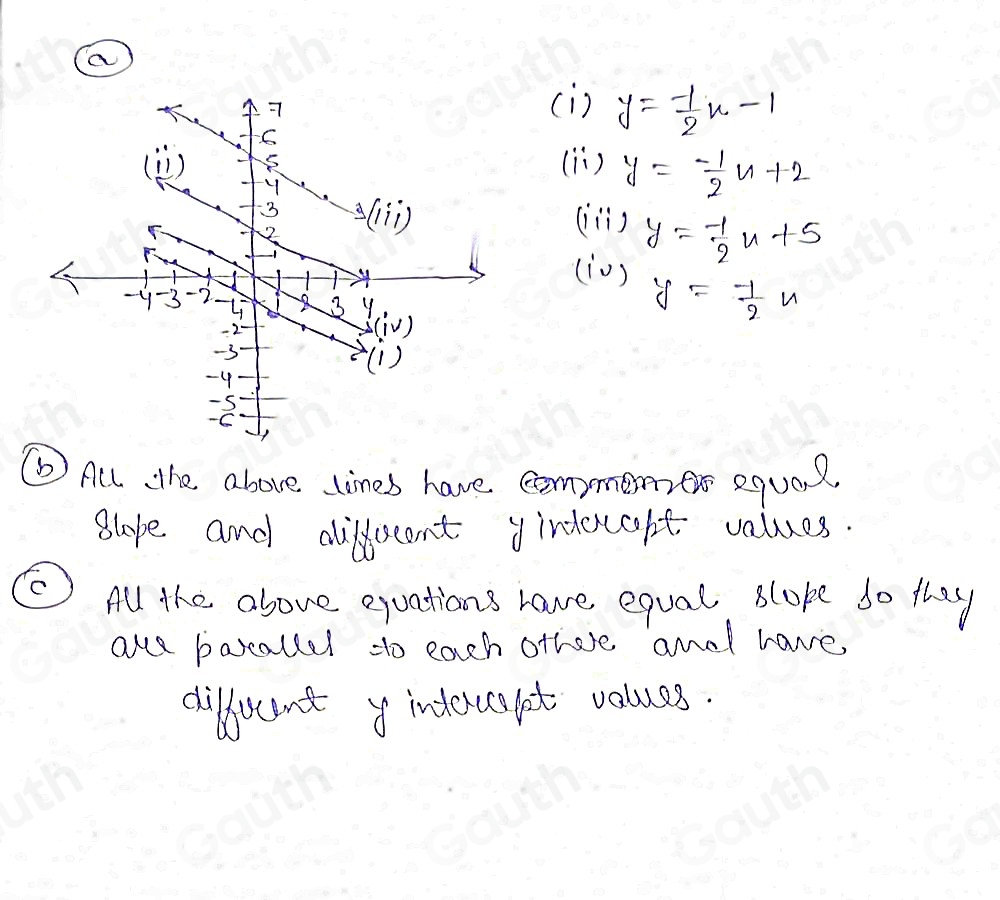 (a)
(i) y = -1/2 x - 1
(ii) y = -1/2 x + 2
(iii) y = -1/2 x + 5
(iv) y = -1/2 x
7
6
5
4
3
2
1
(ii)
(iii)
-4 -3 -2 -1 1 2 3 4
-2
-3
-4
-5
-6
(iv)
(i)
(b) All the above lines have equal
Slope and different y intercept values.
(c) All the above equations have equal slope so they
are parallel to each other and have
different y intercept values.
Gauth